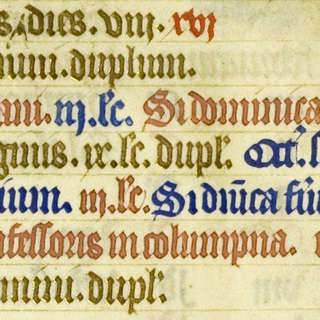 s. dies. viij. xvj
num. duplum.
am. iij. lc. Si dominica
gnus. ix. lc. dupl. Oct.
lium. iij. lc. Si dnica fu
nfessoris in columpna.
mini. dupl.